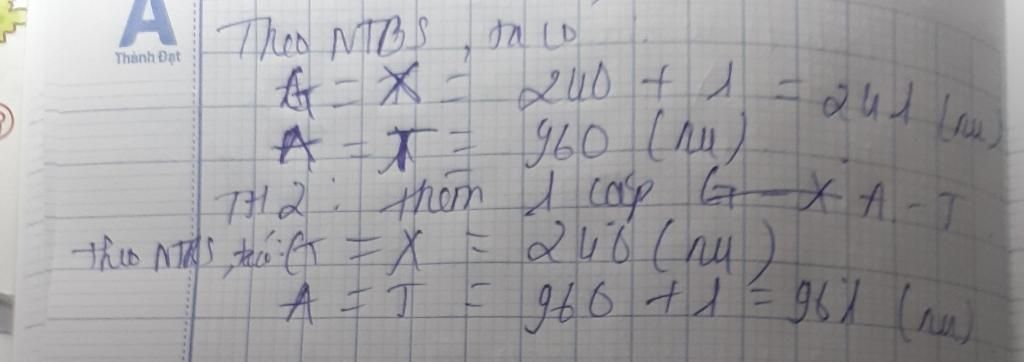 A
Thành Đạt
Theo NTBS, ta có
G = X = 240 + 1 = 241 (nu)
A = T = 960 (nu)
TH2: thêm 1 cặp G-X A-T
theo NTBS, ta có: G = X = 240 (nu)
A = T = 960 + 1 = 961 (nu)